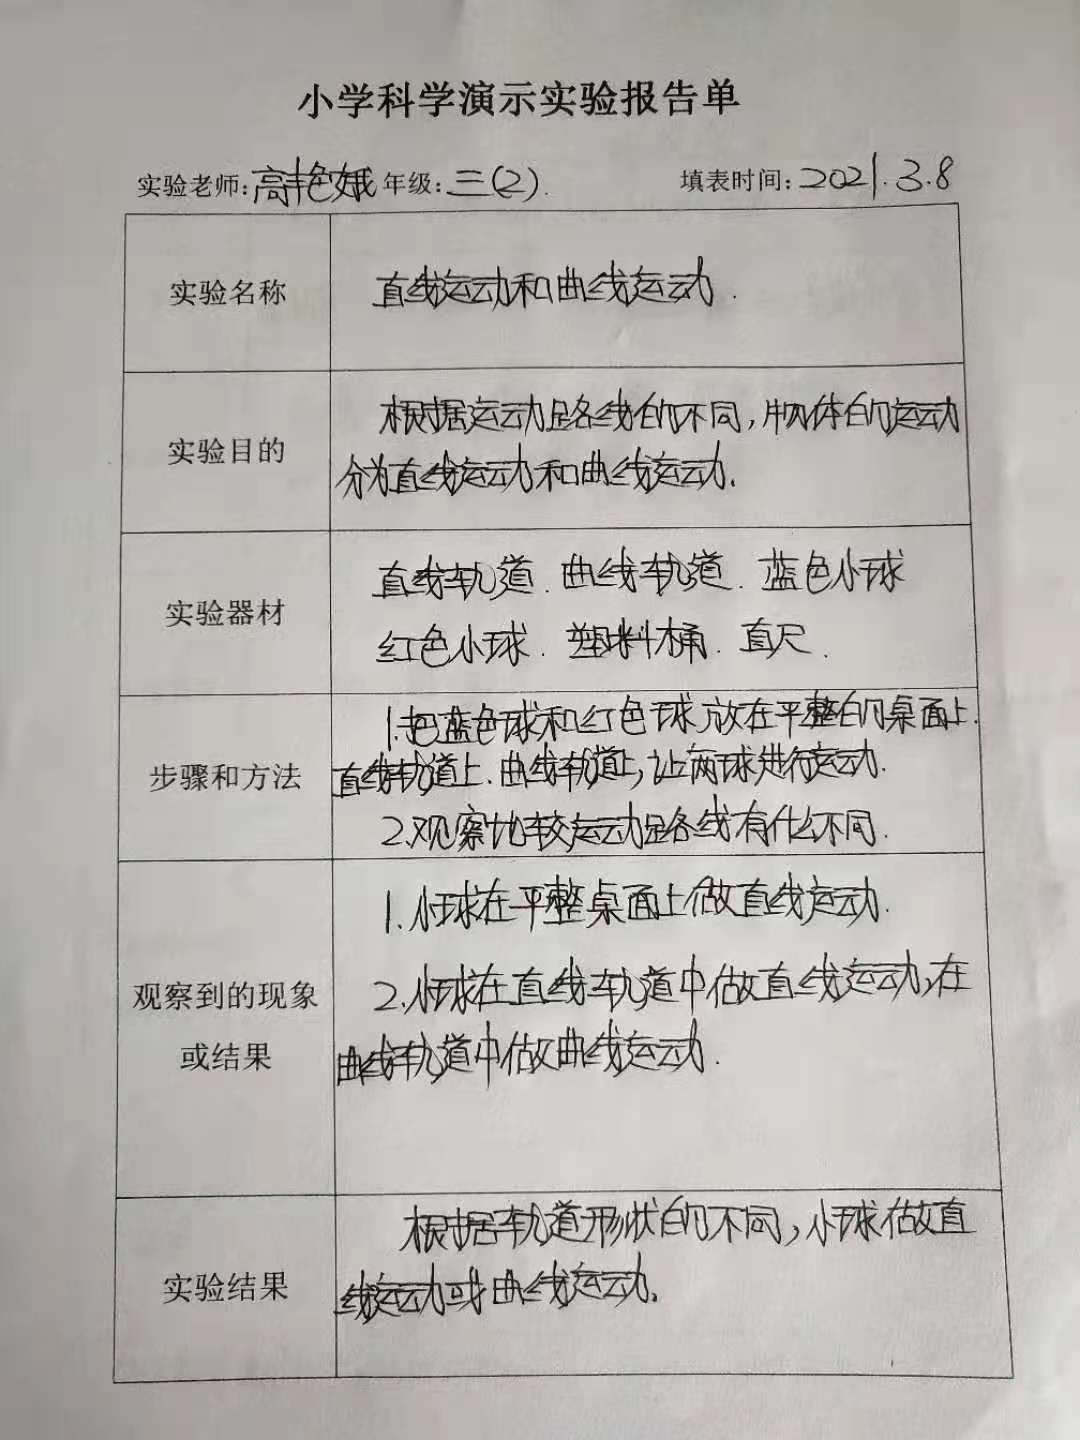 小学科学演示实验报告单
实验老师:高艳娥 年级:三(2). 填表时间:2021.3.8
实验名称
直线运动和曲线运动.
实验目的
根据运动路线的不同,物体的运动
分为直线运动和曲线运动.
实验器材
直线轨道.曲线轨道.蓝色小球
红色小球.塑料桶.直尺.
步骤和方法
1.把蓝色球和红色球放在平整的桌面上.
直线轨道上.曲线轨道上,让两球进行运动.
2.观察比较运动路线有什么不同.
观察到的现象
或结果
1.小球在平整桌面上做直线运动.
2.小球在直线轨道中做直线运动,在
曲线轨道中做曲线运动.
实验结果
根据轨道形状的不同,小球做直
线运动或曲线运动.